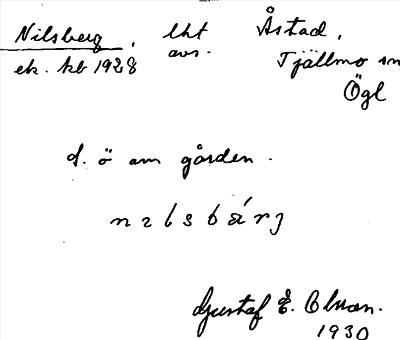 Nilsberg, lht Åstad,
ek. kb 1928 avs. Tjällmo sn
Ögl
d. ö om gården.
Gustaf E. Olson.
1930